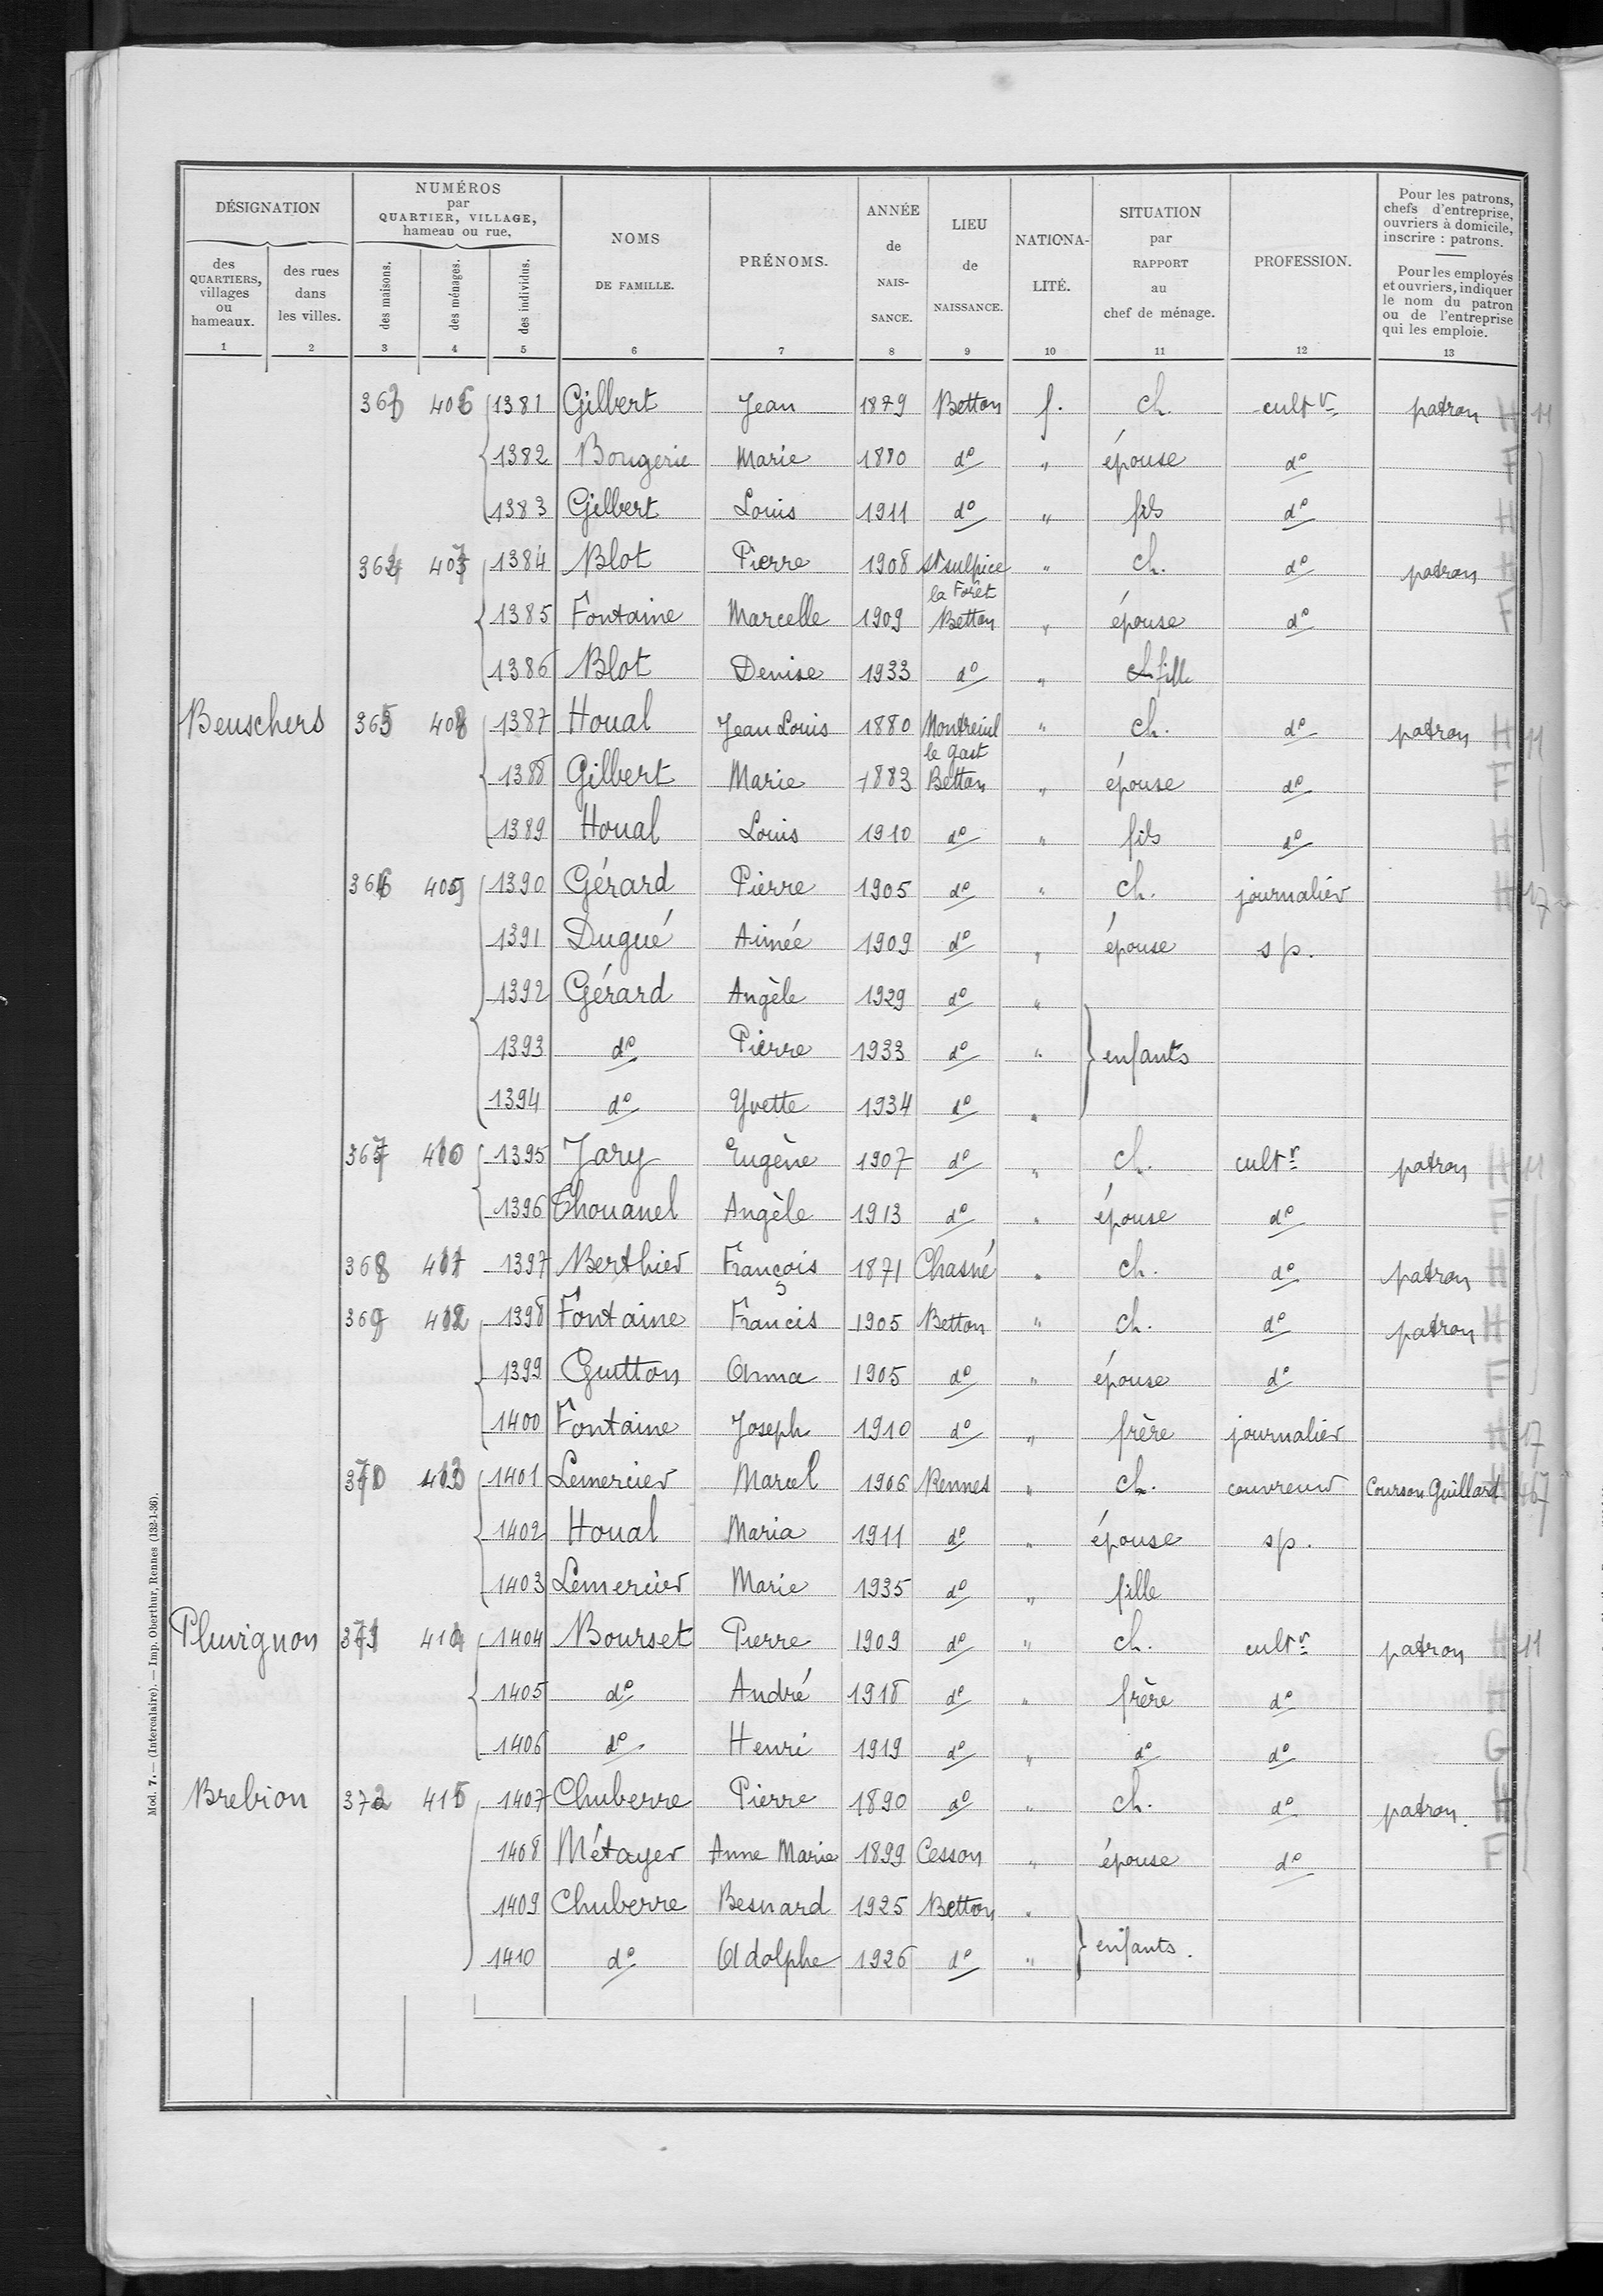 DÉSIGNATION
NUMÉROS
par
QUARTIER, VILLAGE,
hameau ou rue.
des
QUARTIERS,
villages
ou
hameaux.
des rues
dans
les villes.
des maisons.
des ménages.
des individus.
NOMS
DE FAMILLE.
PRÉNOMS.
ANNÉE
de
NAIS-
SANCE.
LIEU
de
NAISSANCE.
NATIONA-
LITÉ.
SITUATION
par
RAPPORT
au
chef de ménage.
PROFESSION.
Pour les patrons,
chefs d'entreprise,
ouvriers à domicile,
inscrire : patrons.
Pour les employés
et ouvriers, indiquer
le nom du patron
ou de l'entreprise
qui les emploie.
1 2 3 4 5 6 7 8 9 10 11 12 13
363 406 1381 Gilbert Jean 1879 Betton f. ch. cultr patron H 11
1382 Bougerie Marie 1880 do " épouse do F
1383 Gilbert Louis 1911 do " fils do H
364 407 1384 Blot Pierre 1908 St sulpice la Forêt " ch. do patron H
1385 Fontaine Marcelle 1909 Betton " épouse do F
1386 Blot Denise 1933 do " fille
Beuschers 365 408 1387 Houal Jean Louis 1880 Montreuil le gast " ch. do patron H 11
1388 Gilbert Marie 1883 Betton " épouse do F
1389 Houal Louis 1910 do " fils do H
366 409 1390 Gérard Pierre 1905 do " ch. journalier H 17
1391 Dugué Aimée 1909 do " épouse sp.
1392 Gérard Angèle 1929 do "
1393 do Pierre 1933 do " enfants
1394 do Yvette 1934 do "
367 410 1395 Jary Eugène 1907 do " ch. cultr patron H 11
1396 Thouanel Angèle 1913 do " épouse do F
368 411 1397 Berthier François 1871 Chasné " ch. do patron H
369 412 1398 Fontaine Francis 1905 Betton " ch. do patron H
1399 Guitton Anna 1905 do " épouse do F
1400 Fontaine Joseph 1910 do " frère journalier H 17
370 413 1401 Lemercier Marcel 1906 Rennes " ch. couvreur Courson Guillard H 467
1402 Houal Maria 1911 do " épouse sp.
1403 Lemercier Marie 1935 do " fille
Pluvignon 371 414 1404 Bourset Pierre 1909 do " ch. cultr patron H 11
1405 do André 1918 do " frère do H
1406 do Henri 1919 do " do do G
Brebion 372 415 1407 Chuberre Pierre 1890 do " ch. do patron. H
1408 Métayer Anne Marie 1899 Cesson " épouse do F
1409 Chuberre Besnard 1925 Betton "
1410 do Adolphe 1926 do " enfants.
Mod. 7. — (Intercalaire). — Imp. Oberthur, Rennes (132-1-36).